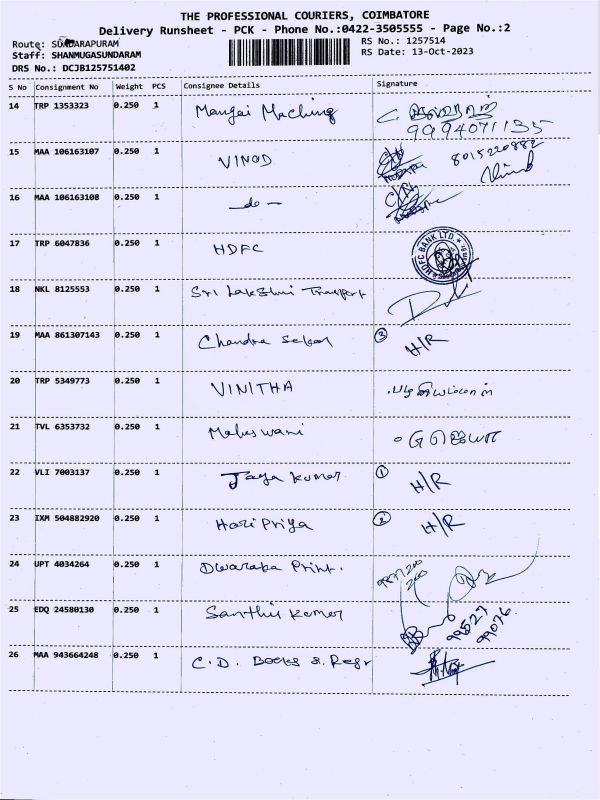 THE PROFESSIONAL COURIERS, COIMBATORE
Delivery Runsheet - PCK - Phone No.:0422-3505555 - Page No.:2
Route: SUNDARAPURAM
RS No.: 1257514
Staff: SHANMUGASUNDARAM
RS Date: 13-Oct-2023
DRS No.: DCJB125751402
S No Consignment No Weight PCS Consignee Details Signature
14 TRP 1353323 0.250 1 Mangai Maching
9994071135
15 MAA 106163107 0.250 1 VINOD 8015220882
Vinod
16 MAA 106163108 0.250 1 — do —
17 TRP 6047836 0.250 1 HDFC HDFC BANK LTD.
18 NKL 8125553 0.250 1 Sri Lakshmi Transport
19 MAA 861307143 0.250 1 Chandra Sekar 3 H/R
20 TRP 5349773 0.250 1 VINITHA
21 TVL 6353732 0.250 1 Maheswari
22 VLI 7003137 0.250 1 Jaya Kumar 1 H/R
23 IXM 504882920 0.250 1 Hari Priya 2 H/R
24 UPT 4034264 0.250 1 Dwaraka Print.
25 EDQ 24580130 0.250 1 Santhis Kumar 99527
99076
26 MAA 943664248 0.250 1 C.D. Books &